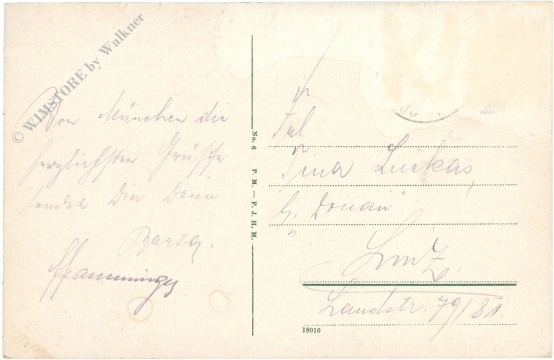 © WIMSTORE by Walkner
Von München die
herzlichsten Grüsse
sendet Dir Dein
No. 6 P. M. – F. J. H. M.
Frl
Tina Luckas,
"Donau"
Linz
Landstr. 79/81.
18010